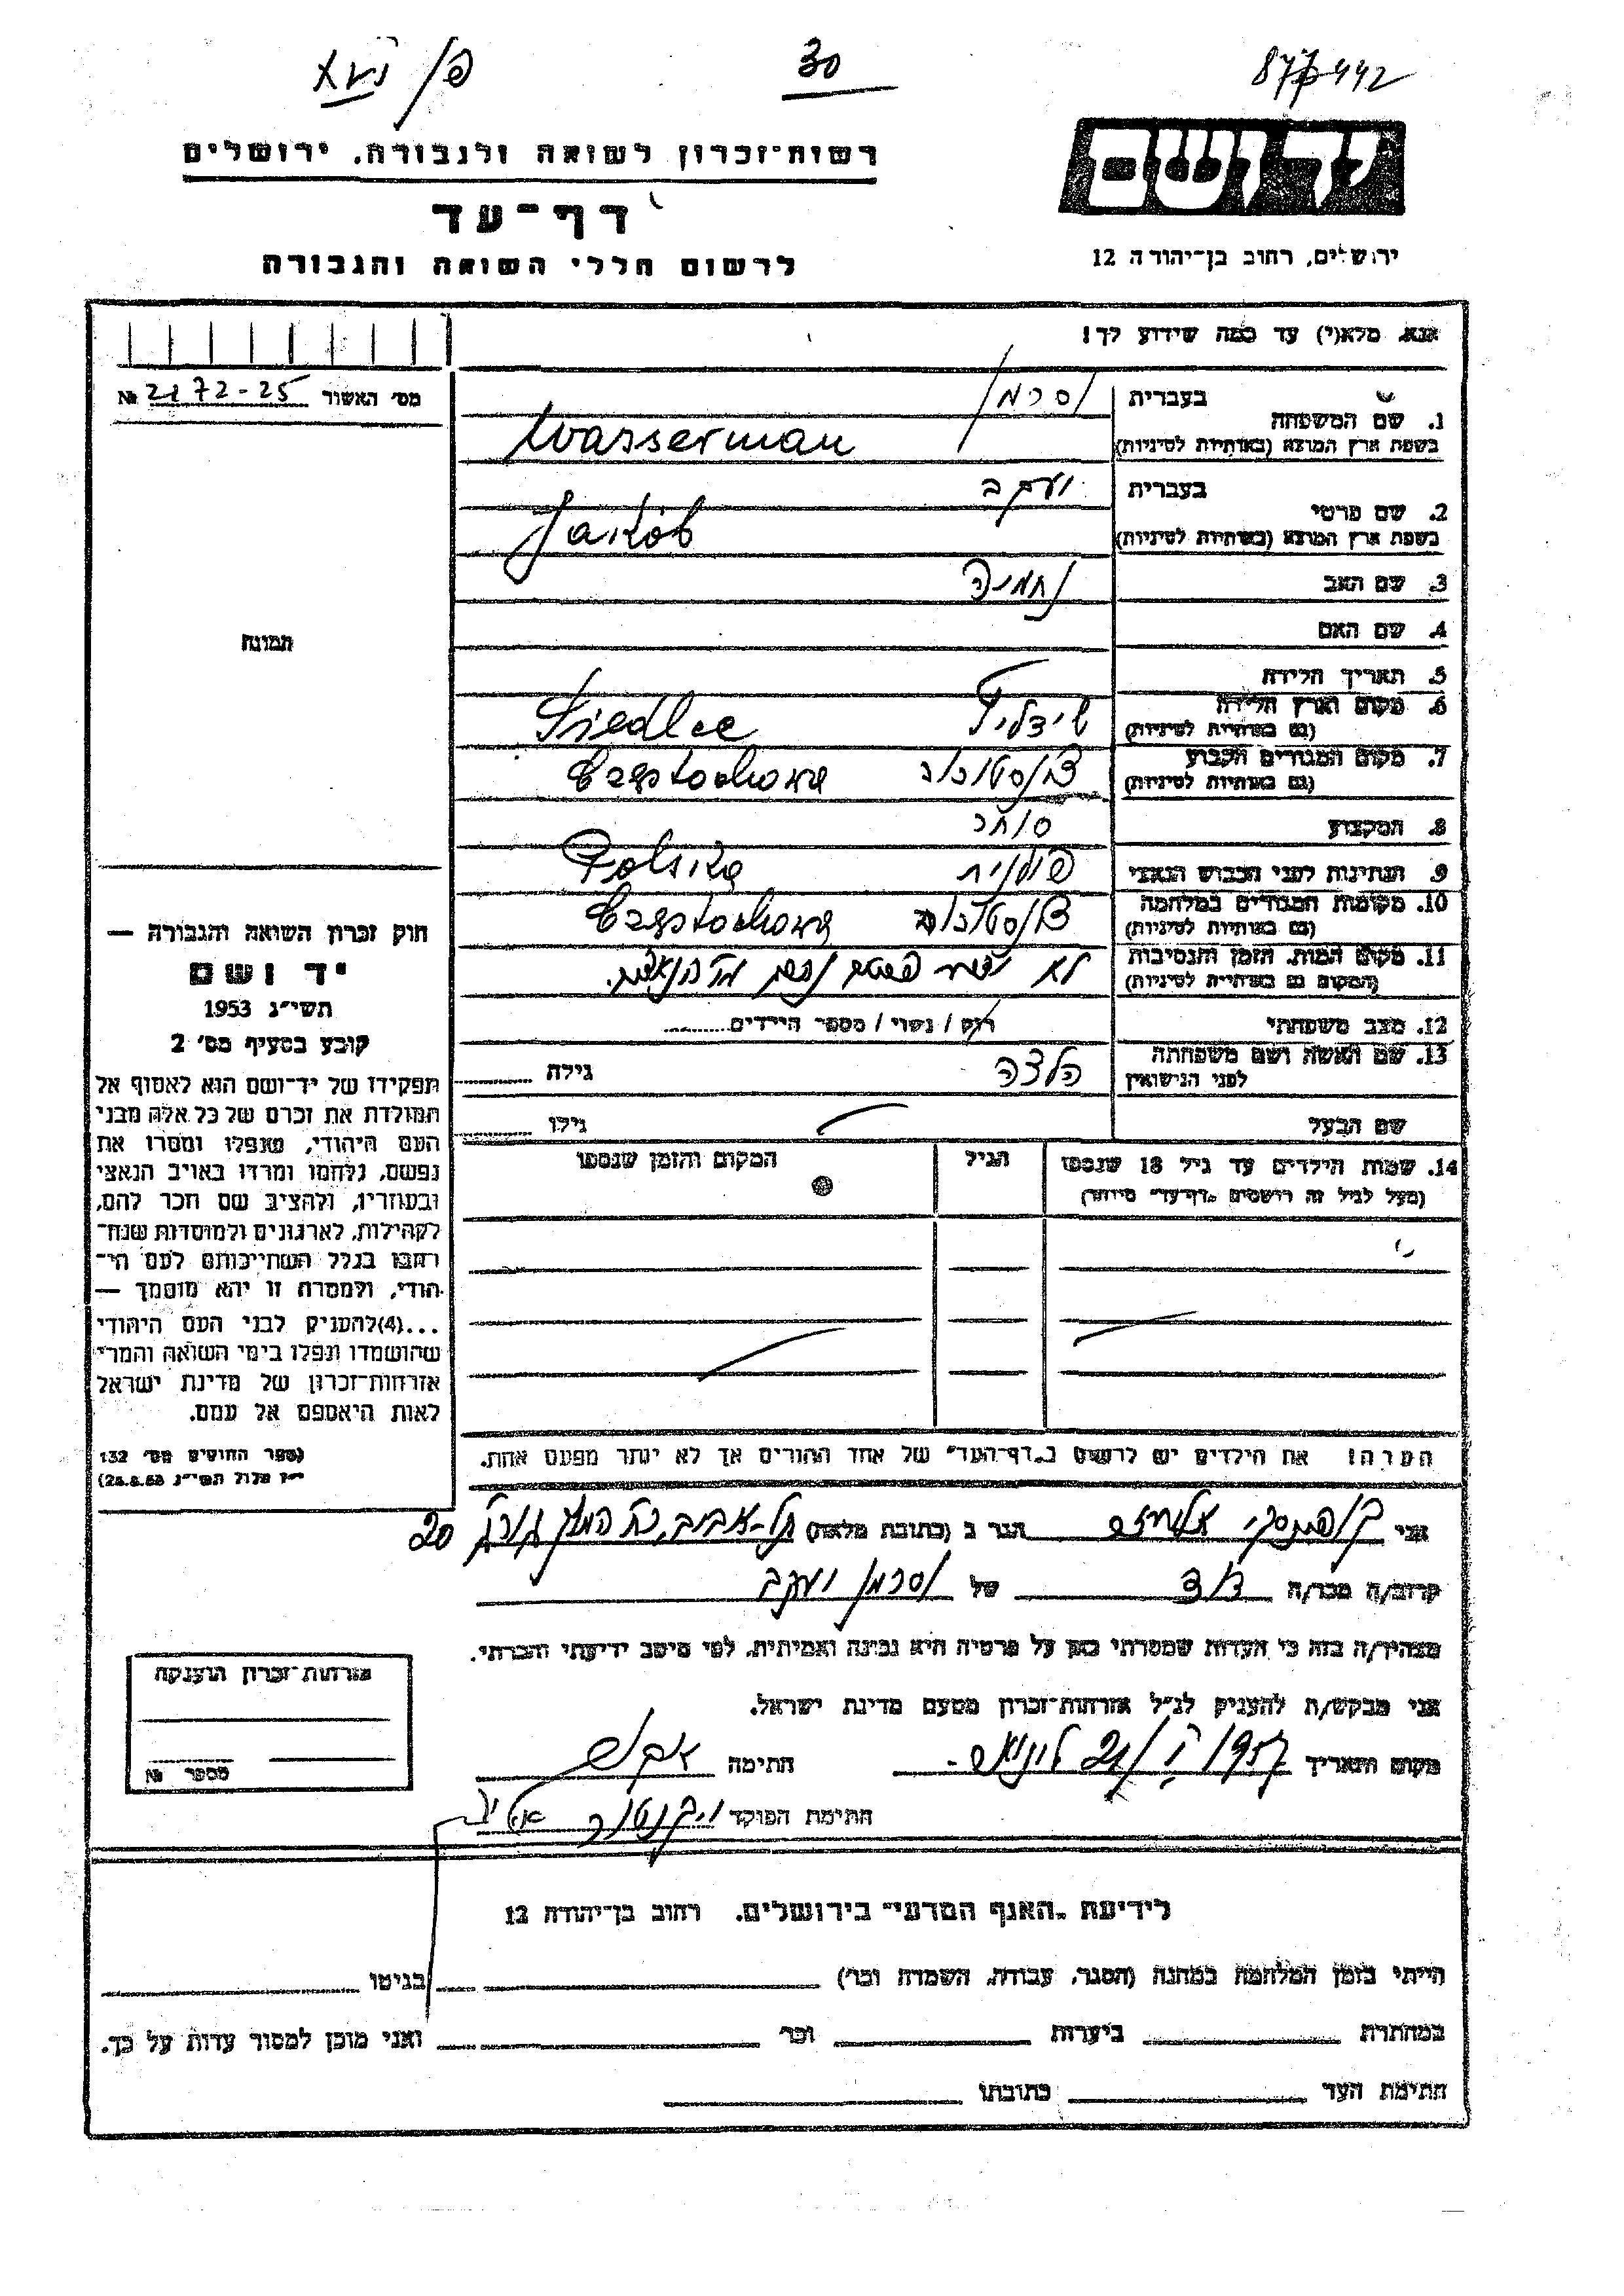 30
877/442
רשות־זכרון לשואה ולגבורה, ירושלים
יד ושם
דף־עד
ירושלים, רחוב בן־יהודה 12
לרשום חללי השואה והגבורה
אנא, מלא(י) עד כמה שידוע לך!
מס׳ האשור № 2172-25
תמונה
חוק זכרון השואה והגבורה —
יד ושם
תשי״ג 1953
קובע בסעיף מס׳ 2
תפקידו של יד־ושם הוא לאסוף אל
המולדת את זכרם של כל אלה מבני
העם היהודי, שנפלו ומסרו את
נפשם, נלחמו ומרדו באויב הנאצי
ובעוזריו, ולהציב שם וזכר להם,
לקהילות, לארגונים ולמוסדות שנח־
רבו בגלל השתייכותם לעם הי־
הודי, ולמטרה זו יהא מוסמך —
...(4)להעניק לבני העם היהודי
שהושמדו ונפלו בימי השואה והמרי
אזרחות־זכרון של מדינת ישראל
לאות היאספם אל עמם.
(ספר החוקים מס׳ 132
י״ז אלול תשי״ג 28.8.53)
1. שם המשפחה בעברית וסרמן
בשפת ארץ המוצא (באותיות לטיניות) Wasserman
2. שם פרטי בעברית יעקב
בשפת ארץ המוצא (באותיות לטיניות) Jakób
3. שם האב נחמיה
4. שם האם
5. תאריך הלידה
6. מקום וארץ הלידה שידליץ Siedlce
(גם באותיות לטיניות)
7. מקום המגורים הקבוע צ'נסטוכוב Częstochowa
(גם באותיות לטיניות)
8. המקצוע סוחר
9. הנתינות לפני הכבוש הנאצי פולנית Polska
10. מקומות המגורים במלחמה צ'נסטוכוב Częstochowa
(גם באותיות לטיניות)
11. מקום המות, הזמן והנסיבות לא
(המקום גם באותיות לטיניות)
12. מצב משפחתי רווק / נשוי / מספר הילדים
13. שם האשה ושם משפחתה גילה
לפני הנישואין
שם הבעל גילו
14. שמות הילדים עד גיל 18 שנספו הגיל המקום והזמן שנספו
(מעל לגיל זה רושמים „דף־עד״ מיוחד)
הערה! את הילדים יש לרשום ב„דף־העד״ של אחד ההורים אך לא יותר מפעם אחת.
אני הגר ב (כתובת מלאה) תל-אביב, 20
קרוב/ה מכר/ה דוד של וסרמן יעקב
מצהיר/ה בזה כי העדות שמסרתי כאן על פרטיה היא נכונה ואמיתית, לפי מיטב ידיעתי והכרתי.
אני מבקש/ת להעניק לנ״ל אזרחות־זכרון מטעם מדינת ישראל.
מקום ותאריך 21/ 1957 חתימה
חתימת הפוקד
אזרחות־זכרון הוענקה
מספר №
לידיעת „האגף המדעי״ בירושלים. רחוב בן־יהודה 12
הייתי בזמן המלחמה במחנה (הסגר, עבודה, השמדה וכו׳) בגיטו
במחתרת ביערות וכו׳ ואני מוכן למסור עדות על כך.
חתימת העד כתובתו